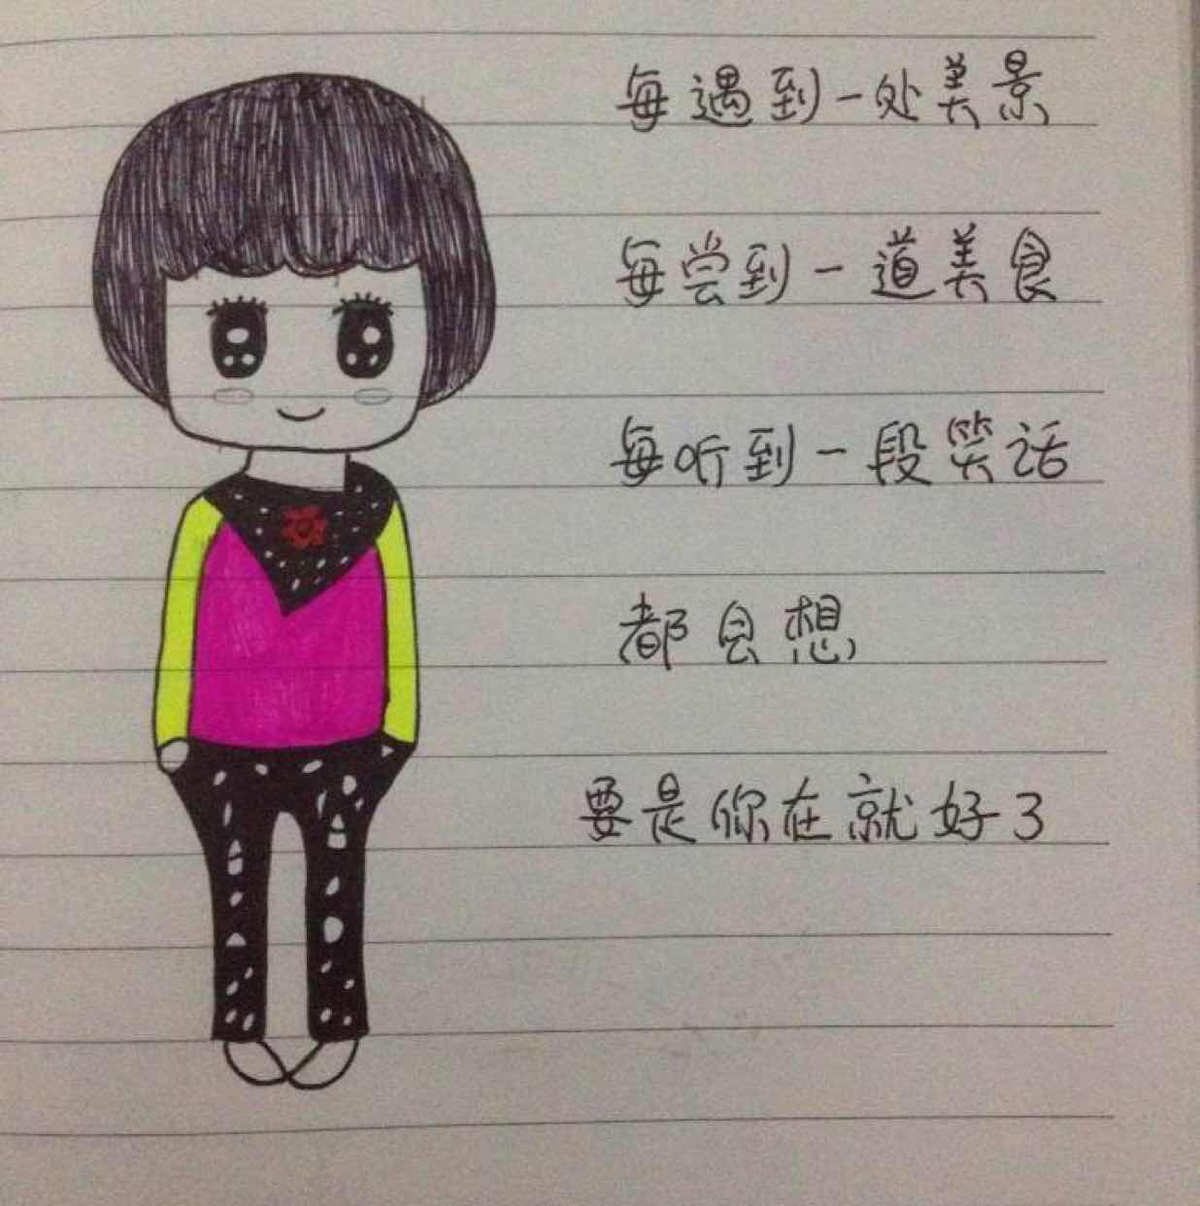 每遇到一处美景
每尝到一道美食
每听到一段笑话
都会想
要是你在就好了